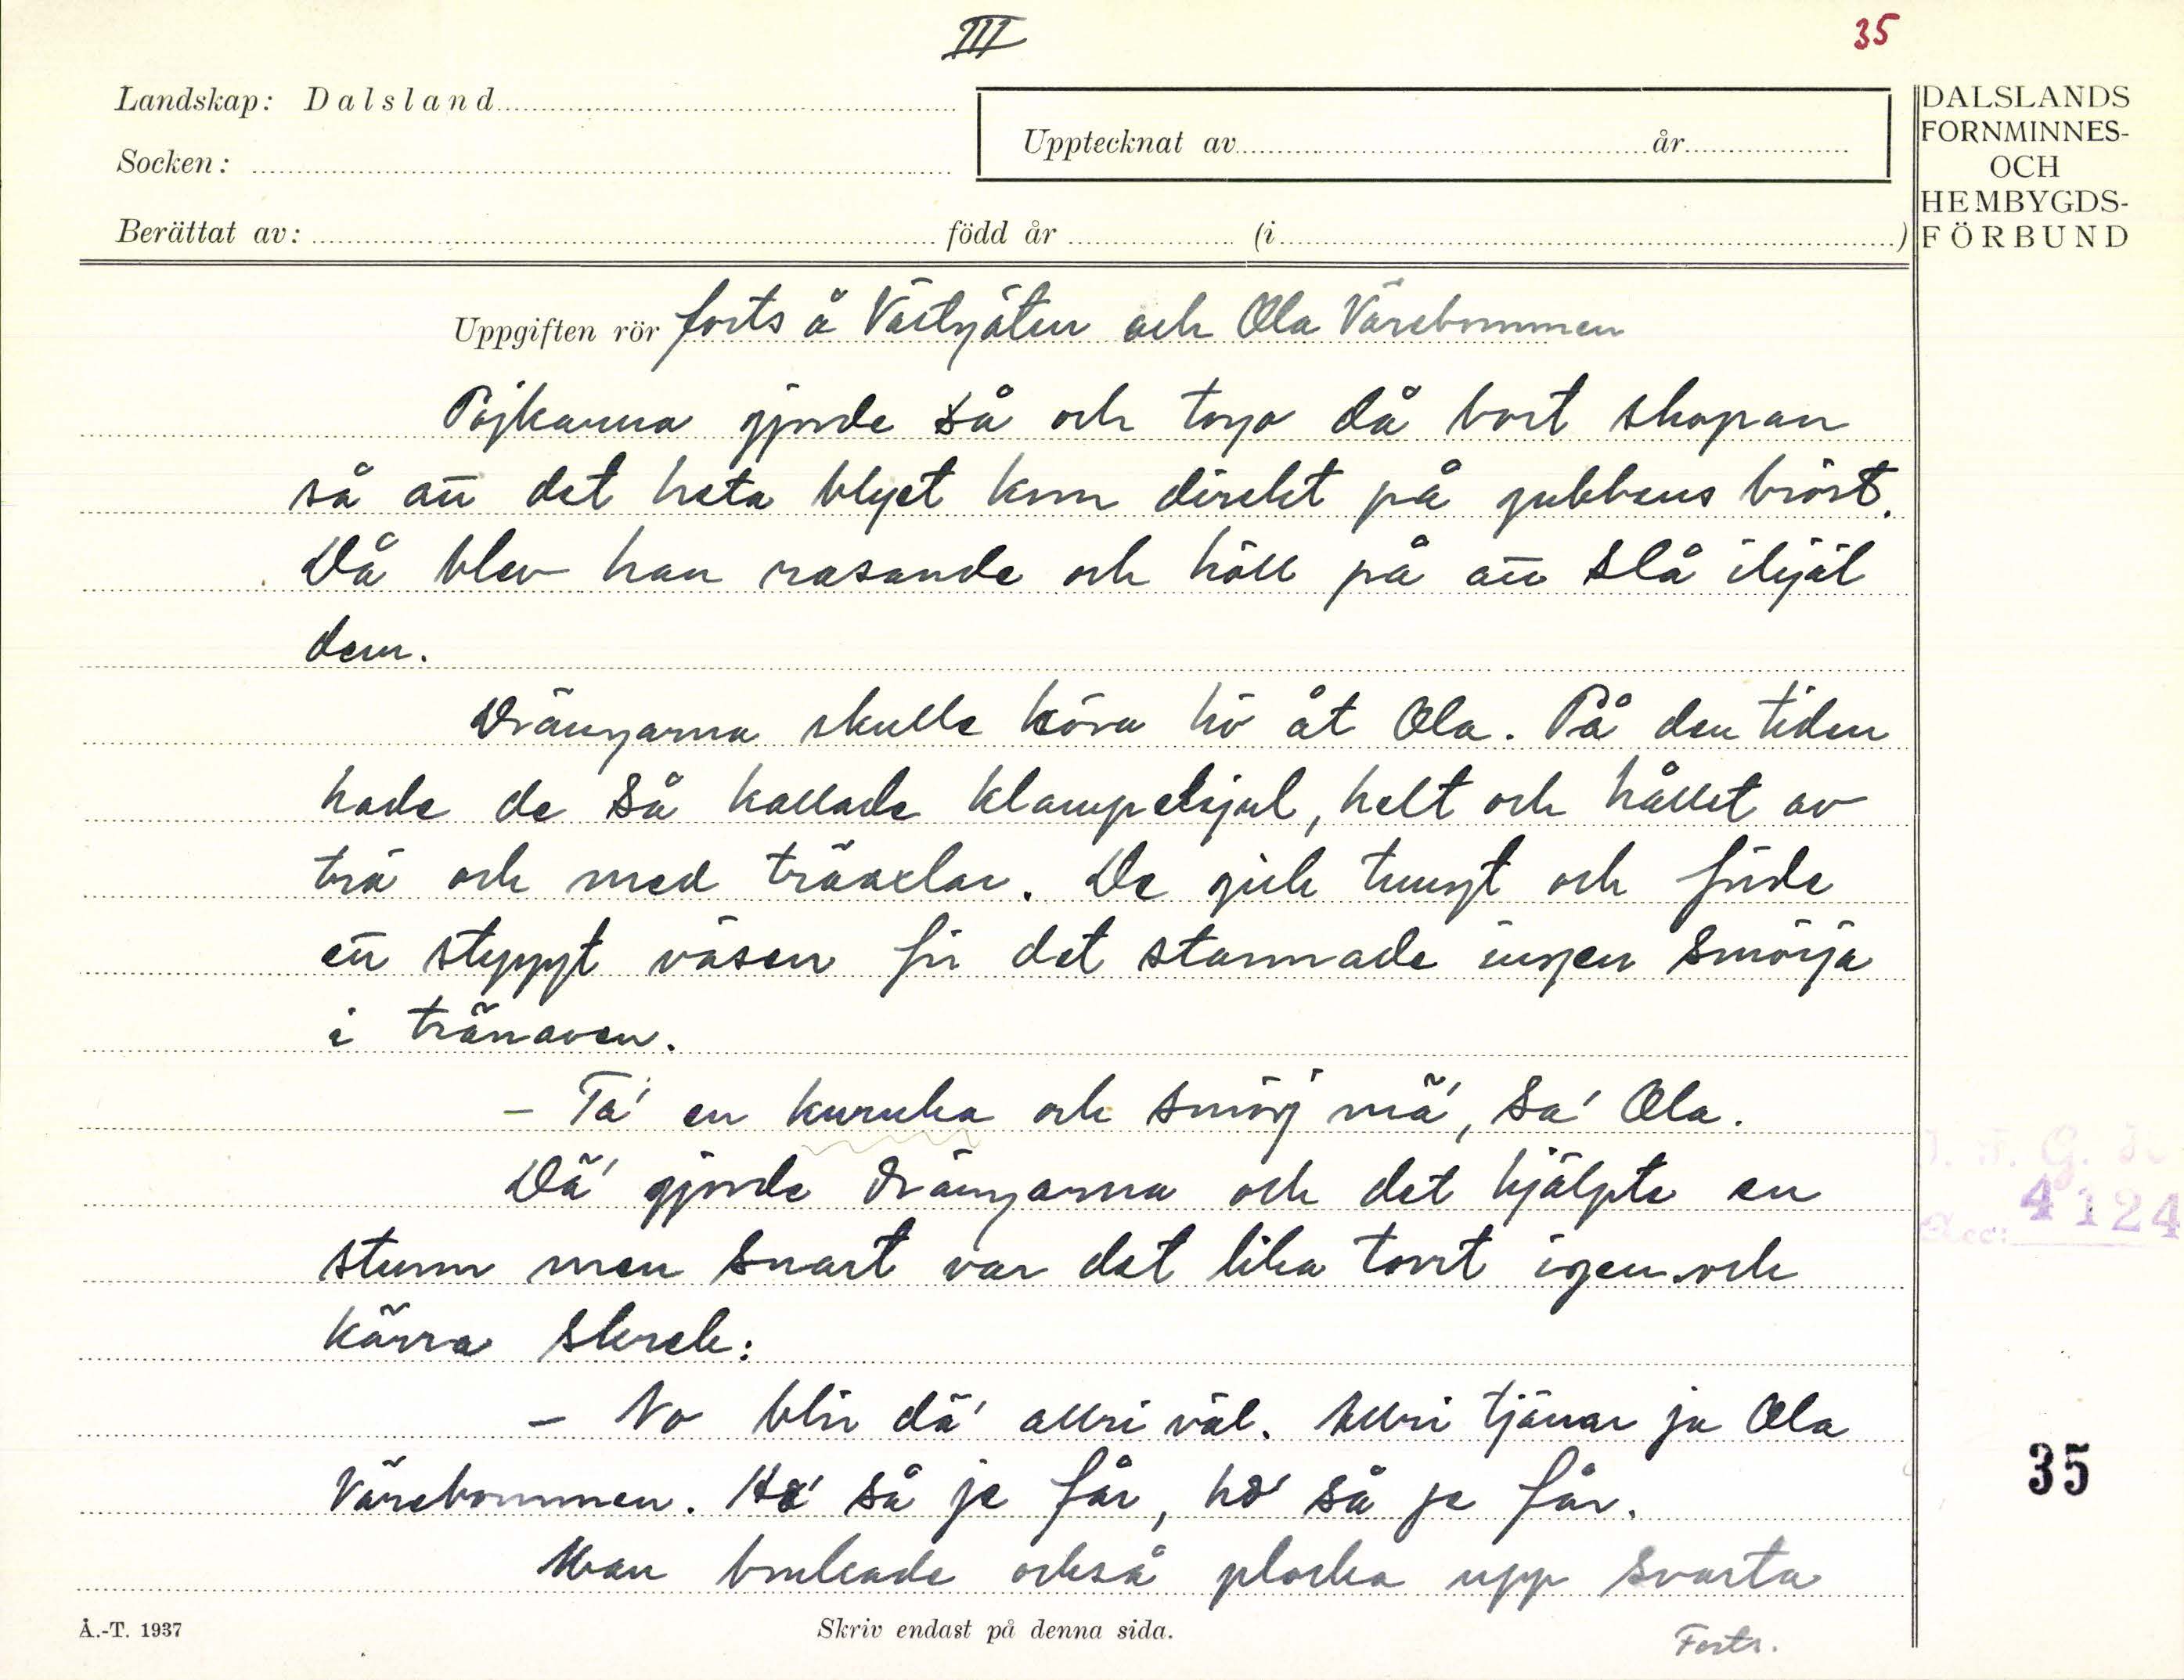 III
35
Landskap: Dalsland
Socken:
Upptecknat av år
Berättat av: född år (i )
DALSLANDS
FORNMINNES-
OCH
HEMBYGDS-
FÖRBUND
Uppgiften rör forts å Västgöten och Ola Värebommen
Pojkarna gjorde så och togo då bort skopan
så att det heta blyet kom direkt på gubbens bröst.
Då blev han rasande och höll på att slå ihjäl
dem.
Drängarna skulle köra hö åt Ola. På den tiden
hade de så kallade klampehjul, helt och hållet av
trä och med träaxlar. De gick tungt och förde
ett styggt väsen för det stannade ingen smörja
i tränaven.
– Ta' en kuruka och smörj mä', sa' Ola.
Dä' gjorde drängarna och det hjälpte en
stunn men snart var det lika torrt igen och
kärra skrek:
– No blir dä' allri väl. Allri tjänar ja Ola
Värebommen. Hö' så je får, hö' så je får.
Man brukade också plocka upp svarta
Forts.
4124
Acc:
35
Å.-T. 1937
Skriv endast på denna sida.